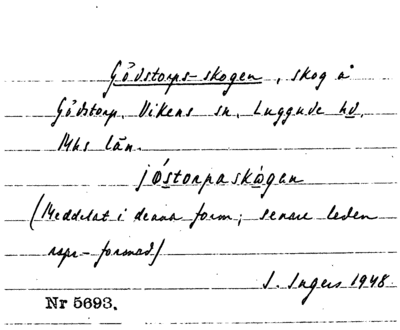 Gödstorps-skogen, skog å
Gödstorp, Vikens sn, Luggude hd,
Mhs län.
jǿstorpaskågan
(Meddelat i denna form; senare leden
rspr-formad)
I. Ingers 1948.
Nr 5693.